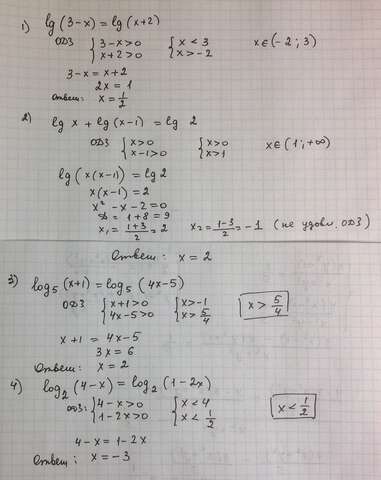 1) lg (3-x) = lg (x+2)
ОДЗ { 3-x>0 { x < 3 x∈(-2; 3)
x+2>0 x > -2
3-x = x+2
2x = 1
Ответ: x = 1/2
2) lg x + lg (x-1) = lg 2
ОДЗ { x>0 { x>0 x∈(1;+∞)
x-1>0 x>1
lg (x(x-1)) = lg 2
x(x-1) = 2
x² - x - 2 = 0
D = 1+8 = 9
x₁ = (1+3)/2 = 2 x₂ = (1-3)/2 = -1 (не удовл. ОДЗ)
Ответ: x = 2
3) log₅ (x+1) = log₅ (4x-5)
ОДЗ { x+1>0 { x>-1 x > 5/4
4x-5>0 x > 5/4
x+1 = 4x-5
3x = 6
Ответ: x = 2
4) log₂ (4-x) = log₂ (1-2x)
ОДЗ: { 4-x>0 { x<4 x < 1/2
1-2x>0 x < 1/2
4-x = 1-2x
Ответ: x = -3